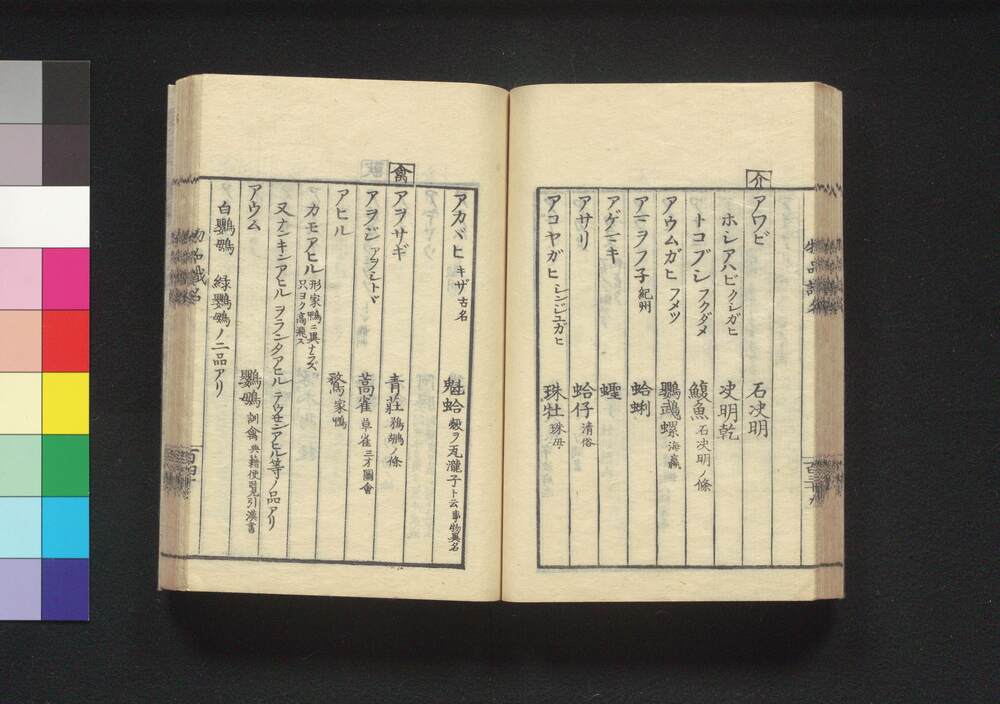 介
アワビ 石决明
ホシアハビ クシガヒ 决明乾
トコブシ フクダメ 鰒魚 石决明ノ條
アウムガヒ フメツ 鸚鵡螺 海蠃
アミヲフ子 紀州 蛤蜊
アゲマキ 蟶
アサリ 蛤仔 清俗
アコヤガヒ シンジユガヒ 珠牡 珠母
アカバヒ キザ 古名 魁蛤 殻ヲ瓦瓏子ト云 事物異名
禽
アヲサギ 青莊 鵜鶘ノ條
アヲジ アヲシトヾ 蒿雀 草雀 三才圖會
アヒル 鶩 家鴨
カモアヒル 形家鴨ニ異ナラズ
只ヨク高飛ス
又ナンキンアヒル ヲランダアヒル テウセンアヒル等ノ品アリ
アウム 鸚鵡 訓禽 典籍便覧引漢書
白鸚鵡 緑鸚鵡ノ二品アリ